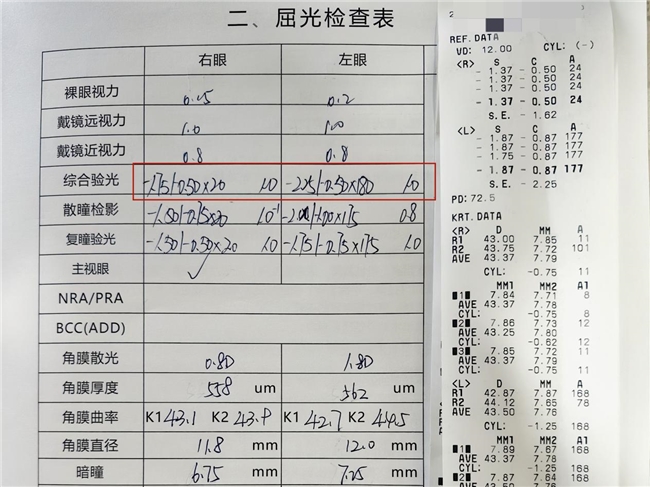 二、屈光检查表
右眼 左眼
裸眼视力 0.15 0.2
戴镜远视力 1.0 1.0
戴镜近视力 0.8 0.8
综合验光 -1.75/-0.50×20 1.0 -2.25/-0.50×180 1.0
散瞳检影 -1.50/-0.75×20 1.0⁻¹ -1.00×175 0.8
复瞳验光 -1.50/-0.50×20 1.0 -1.75/-0.75×175 1.0
主视眼 ✓
NRA/PRA
BCC(ADD)
角膜散光 0.8D 1.8D
角膜厚度 558 um 562 um
角膜曲率 K1 43.1 K2 43.9 K1 42.7 K2 44.5
角膜直径 11.8 mm 12.0 mm
暗瞳 6.75 mm 7.25 mm
REF.DATA
VD: 12.00 CYL: (-)
<R> S C A
- 1.37 - 0.50 24
- 1.37 - 0.50 24
- 1.37 - 0.50 24
- 1.37 - 0.50 24
S.E. - 1.62
<L> S C A
- 1.87 - 0.87 177
- 1.87 - 0.87 177
- 1.75 - 0.87 177
- 1.87 - 0.87 177
S.E. - 2.25
PD: 72.5
KRT.DATA
<R> D MM A
R1 43.00 7.85 11
R2 43.75 7.72 101
AVE 43.37 7.79
CYL: -0.75 11
MM1 MM2 A1
■1■ 7.84 7.71 8
AVE 43.37 7.78
CYL: -0.75 8
■2■ 7.86 7.73 12
AVE 43.25 7.80
CYL: -0.62 12
■3■ 7.85 7.72 11
AVE 43.37 7.79
CYL: -0.75 11
<L> D MM A
R1 42.87 7.87 168
R2 44.12 7.65 78
AVE 43.50 7.76
CYL: -1.25 168
MM1 MM2 A1
■1■ 7.89 7.67 168
AVE 43.37 7.78
CYL: -1.25 168
■2■ 7.87 7.64 168
AVE 43.50 7.76